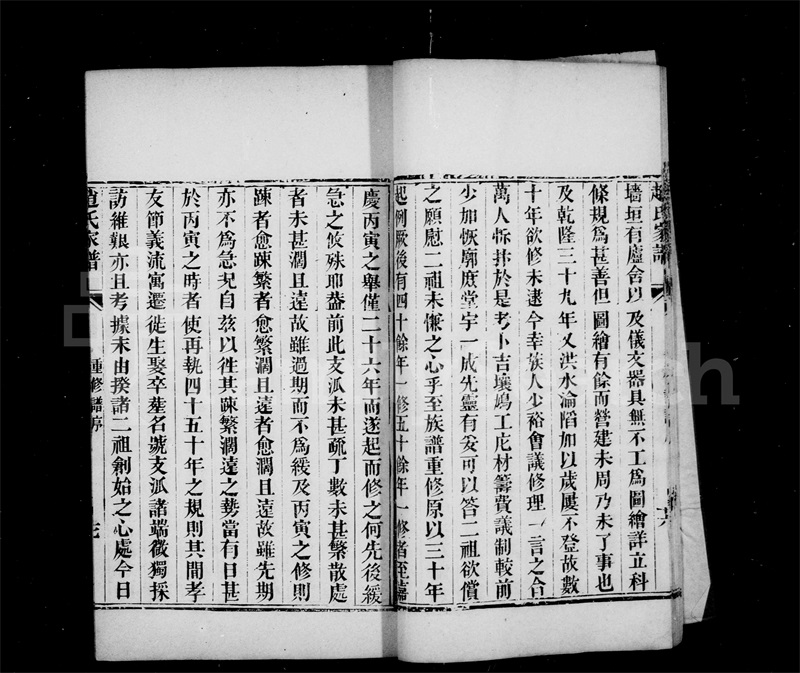 趙氏家譜
墻垣有廬舍以及儀文器具無不工為圖繪詳立科
條規為甚善但圖繪有餘而營建未周乃未了事也
及乾隆三十九年又洪水淪陷加以歲屢不登故數
十年欲修未逮今幸族人少裕會議修理一言之合
萬人忭拝於是考卜吉壤鳩工庀材籌費議制較前
少加恢廓庶堂宇一成先靈有妥可以答二祖欲償
之願慰二祖未慊之心乎至族譜重修原以三十年
起例厥後有四十餘年一修五十餘年一修者至嘉
慶丙寅之舉僅二十六年而遂起而修之何先後緩
急之攸殊耶蓋前此支派未甚疏丁數未甚繁散處
者未甚濶且遠故雖過期而不為緩及丙寅之修則
踈者愈踈繁者愈繁濶且遠者愈濶且遠故雖先期
亦不為急兄自茲以徃其踈繁濶遠之勢當有日甚
於丙寅之時者使再執四十五十年之規則其間孝
友節義流寓遷徙生娶卒塟名號支派諸端微獨採
訪維艱亦且考據末由揆諸二祖創始之心處今日
趙氏家譜
重修譜序